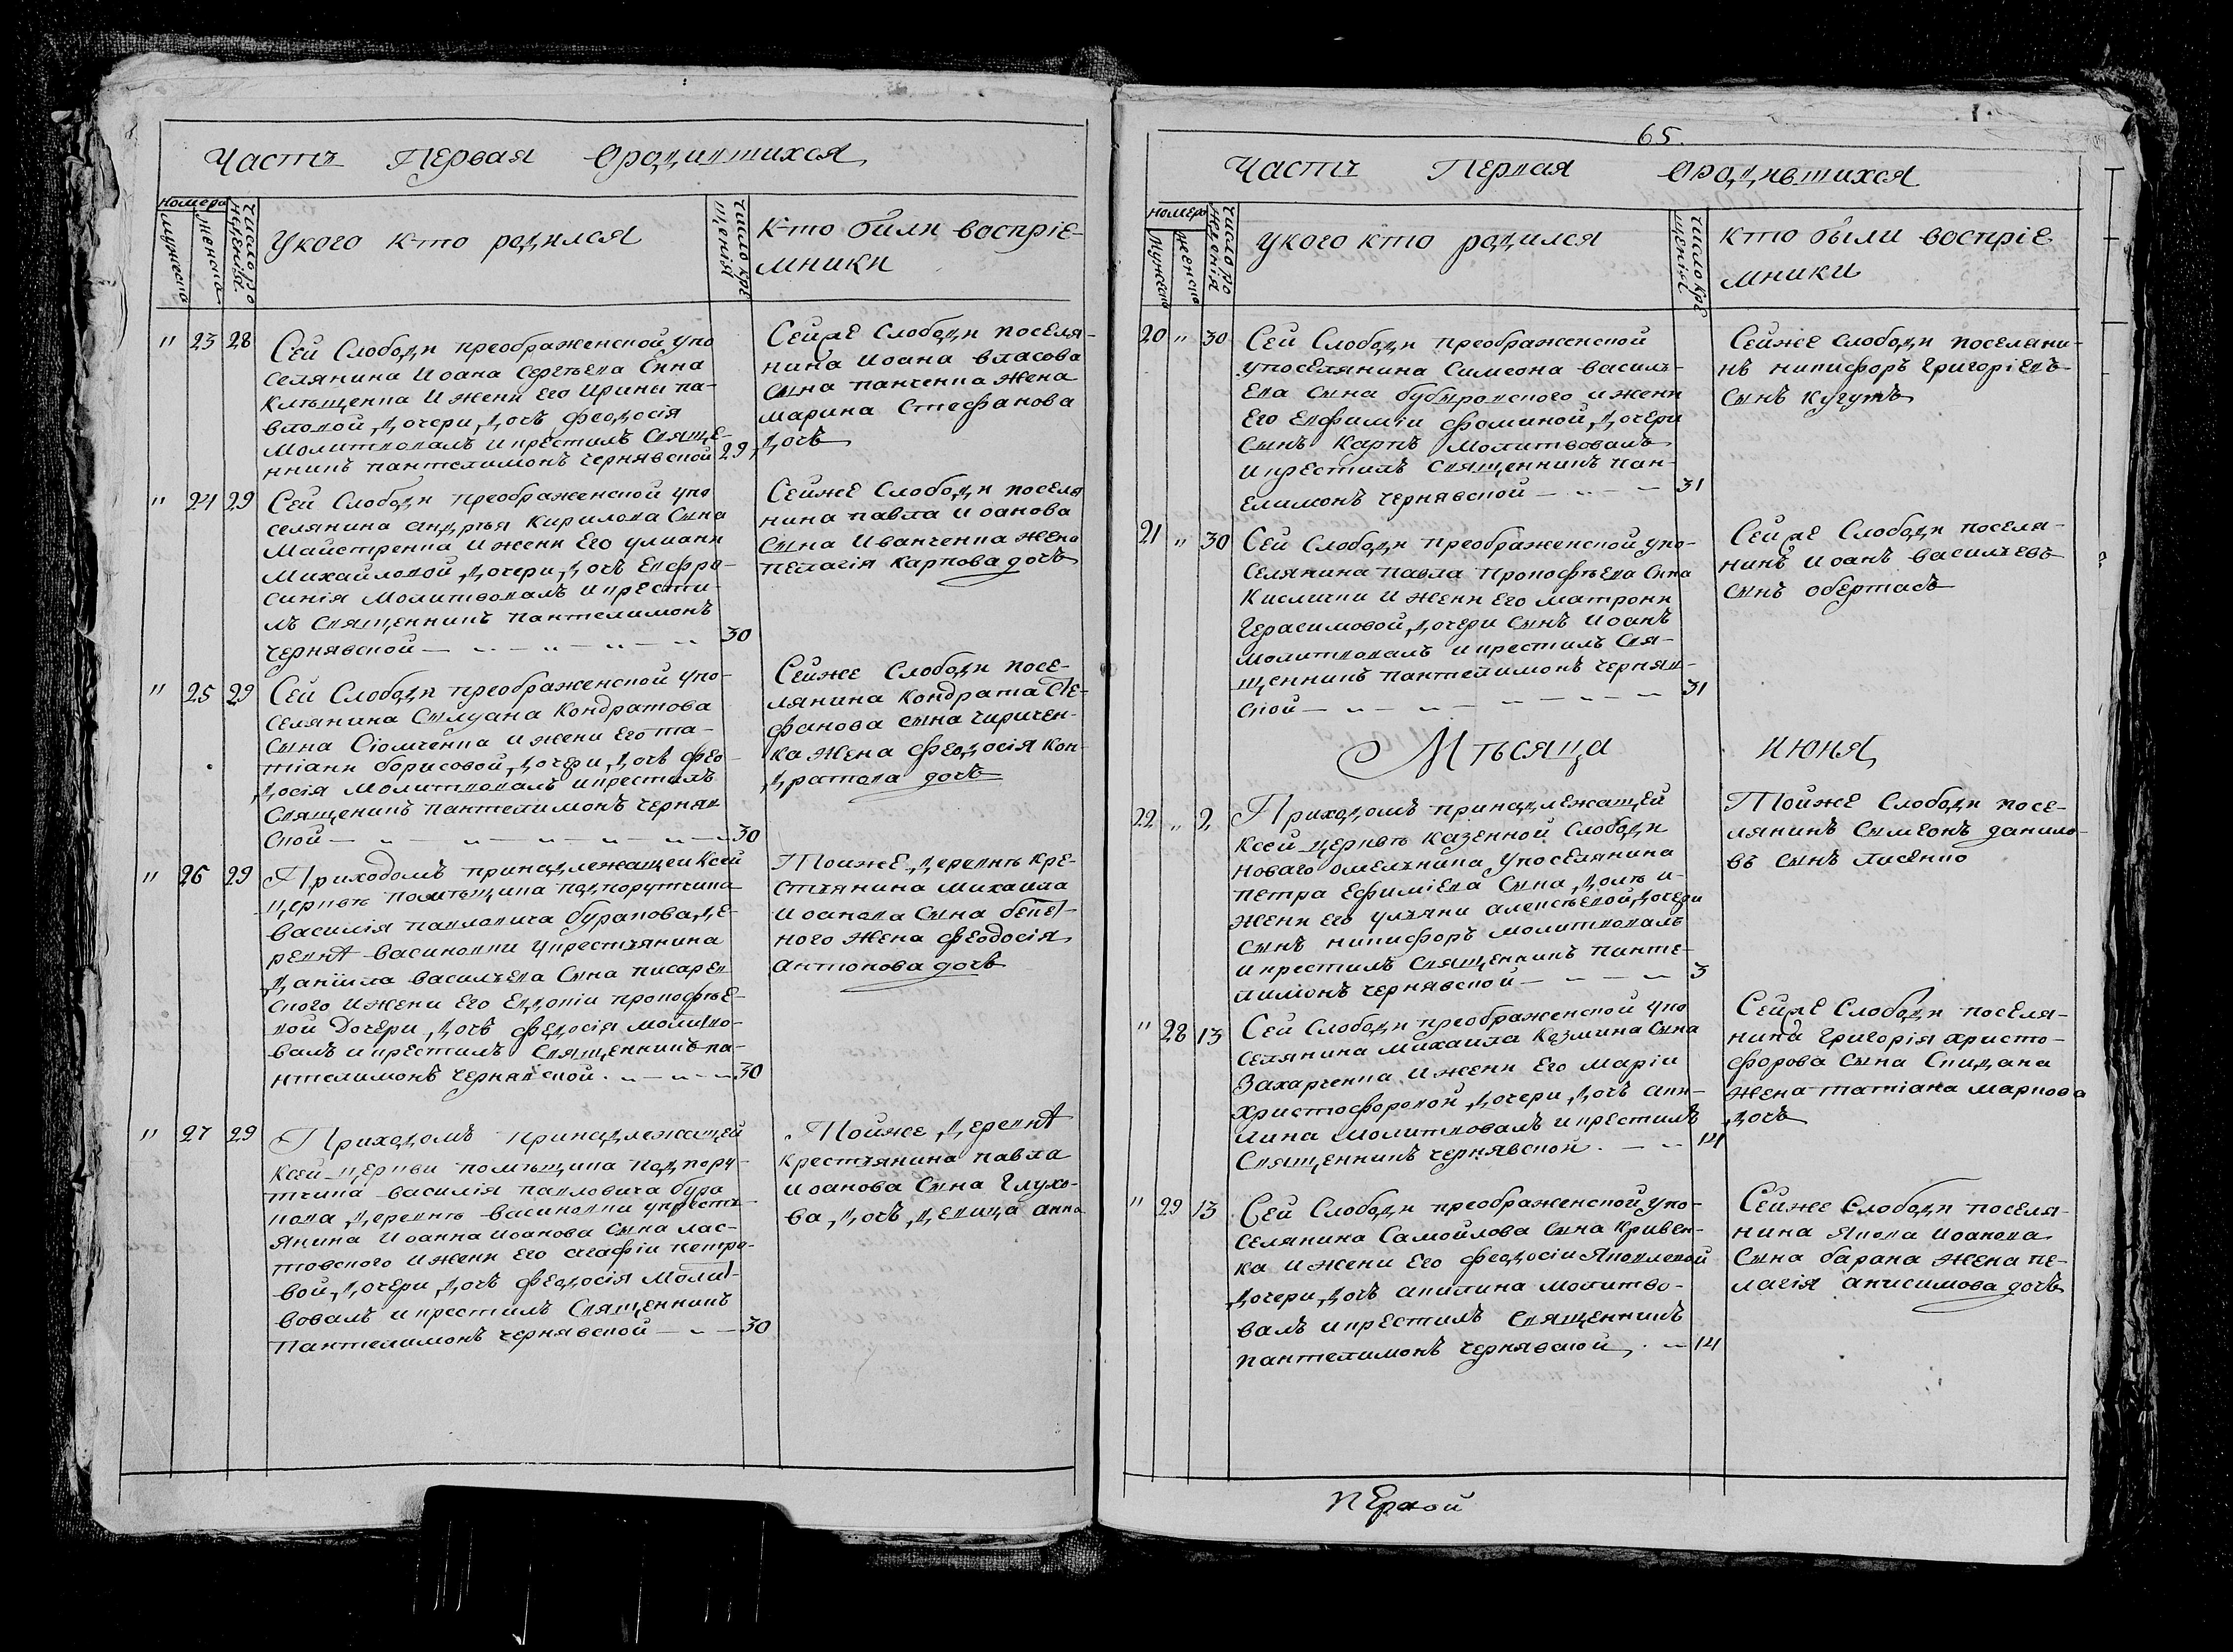 Часть Первая Ородившихся
номера
мужеска
женска
число рожденія
Укого кто родился
число крещенія
Кто были воспріе-
мники
" 23 28
Сей Слободи преображенской упо
селянина Иоана Сергѣева Сина
Клѣщенка И жени Его Ирины па-
вловой дочери дочь феодосія
молитвовалъ и крестилъ Свяще-
нникъ пантелимонъ чернявской 29
Сейже Слободи поселя-
нина Иоана власова
сына панченка жена
марина Стефанова
дочь
" 24 29
Сей Слободи преображенской упо
селянина андрѣя Кирилова Сына
Майстренка И жени Его улиани
Михайловой дочери дочь Евфро-
синія молитвовалъ и крести-
лъ Священникъ пантелимонъ
чернявской 30
Сейже Слободи поселя
нина павла Иоанова
сына Иванченка жена
пелагія Карпова дочь
" 25 29
Сей Слободи преображенской упо-
селянина Сылуана Кондратова
сына Сіомченка и жени Его та-
тіани борисовой дочери дочь фео-
досія молитвовалъ и крестилъ
Священикъ пантелимонъ черняв
ской 30
Сейже Слободи посе-
лянина Кондрата Сте-
фанова сына чиричен-
ка жена феодосія Кон-
дратова дочь
" 26 29
Приходомъ принадлежащей Ксей
церквѣ помѣщика подпорутчика
василія павловича буракова де-
ревнѣ васиновки укрестьянина
Даніила василъева Сына писарев
ского И жени Его Евдокіи прокофъе-
вой Дочери дочь федосія молитво-
валъ и крестилъ Священникъ па-
нтелимонъ чернявской 30
Тойже деревнѣ кре-
стьянина михаила
Иоанова Сына
ного жена феодосія
антонова дочь
" 27 29
Приходомъ принадлежащей
Ксей церкви помѣщика подпору-
тчика василія павловича бура
кова деревнѣ васиновки укресть-
янина Иоанна Иоанова Сына лас-
товского И жени Его агафіи петро-
вой дочери дочь феодосія молит-
вовалъ и крестилъ Священникъ
Пантелимонъ чернявской 30
Тойже деревнѣ
крестьянина павла
Иоанова Сына Глухо-
ва дочь девица анна
65.
Часть Первая Ородившихся
номера
мужеска
женска
число рожденія
укого кто родился
число крещенія
кто были воспріе
мники
20 " 30
Сей Слободи преображенской
упоселянина Симеона василъ-
Ева сына бубыровского и жени
Его Евфиміи фоминой дочери
сынъ Карпъ молитвовалъ
и крестилъ Священникъ пан-
елимонъ чернявской 31
Сейже слободи поселяни-
нъ никифоръ Григоріевъ
сынъ кугутъ
21 " 30
Сей Слободи преображенской упо-
селянина павла прокофъева Сина
Кислички И жени Его матрони
Герасимовой дочери сынъ Иоанъ
молитвовалъ и крестилъ Свя-
щенникъ пантелимонъ черняв-
ской 31
Сейже Слободи поселя-
нинъ Иоанъ василъевъ
сынъ обертасъ
Мѣсяца июня
22 " 2
Приходомъ принадлежащей
Ксей церквѣ казенной слободи
новаго омелъника упоселянина
петра Ефиміева Сына и
жени Его улъяни алексѣевой дочери
сынъ никифоръ молитвовалъ
и крестилъ Священникъ панте-
лимонъ чернявской 3
Тойже Слободи посе-
лянинъ сымеонъ данило-
въ сынъ лисенко
" 28 13
Сей Слободи преображенской упо
селянина михаила Казмина Сына
Захарченка И жени Его маріи
Христофоровой дочери дочь аки-
лина молитвовалъ и крестилъ
Священникъ чернявской 14
Сейже Слободи поселя-
нина Григорія христо-
форова сына Спидана
жена татіана маркова
дочь
" 29 13
Сей Слободи преображенской упо-
селянина Самойлова сына кривен-
ка и жени Его феодосіи Яковлевой
дочери дочь акилина молитво-
валъ и крестилъ Священникъ
пантелимонъ чернявской 14
Сейже слободи поселя-
нина Якова Иоанова
сына барана жена пе-
лагія анисимова дочь
пЕрвой